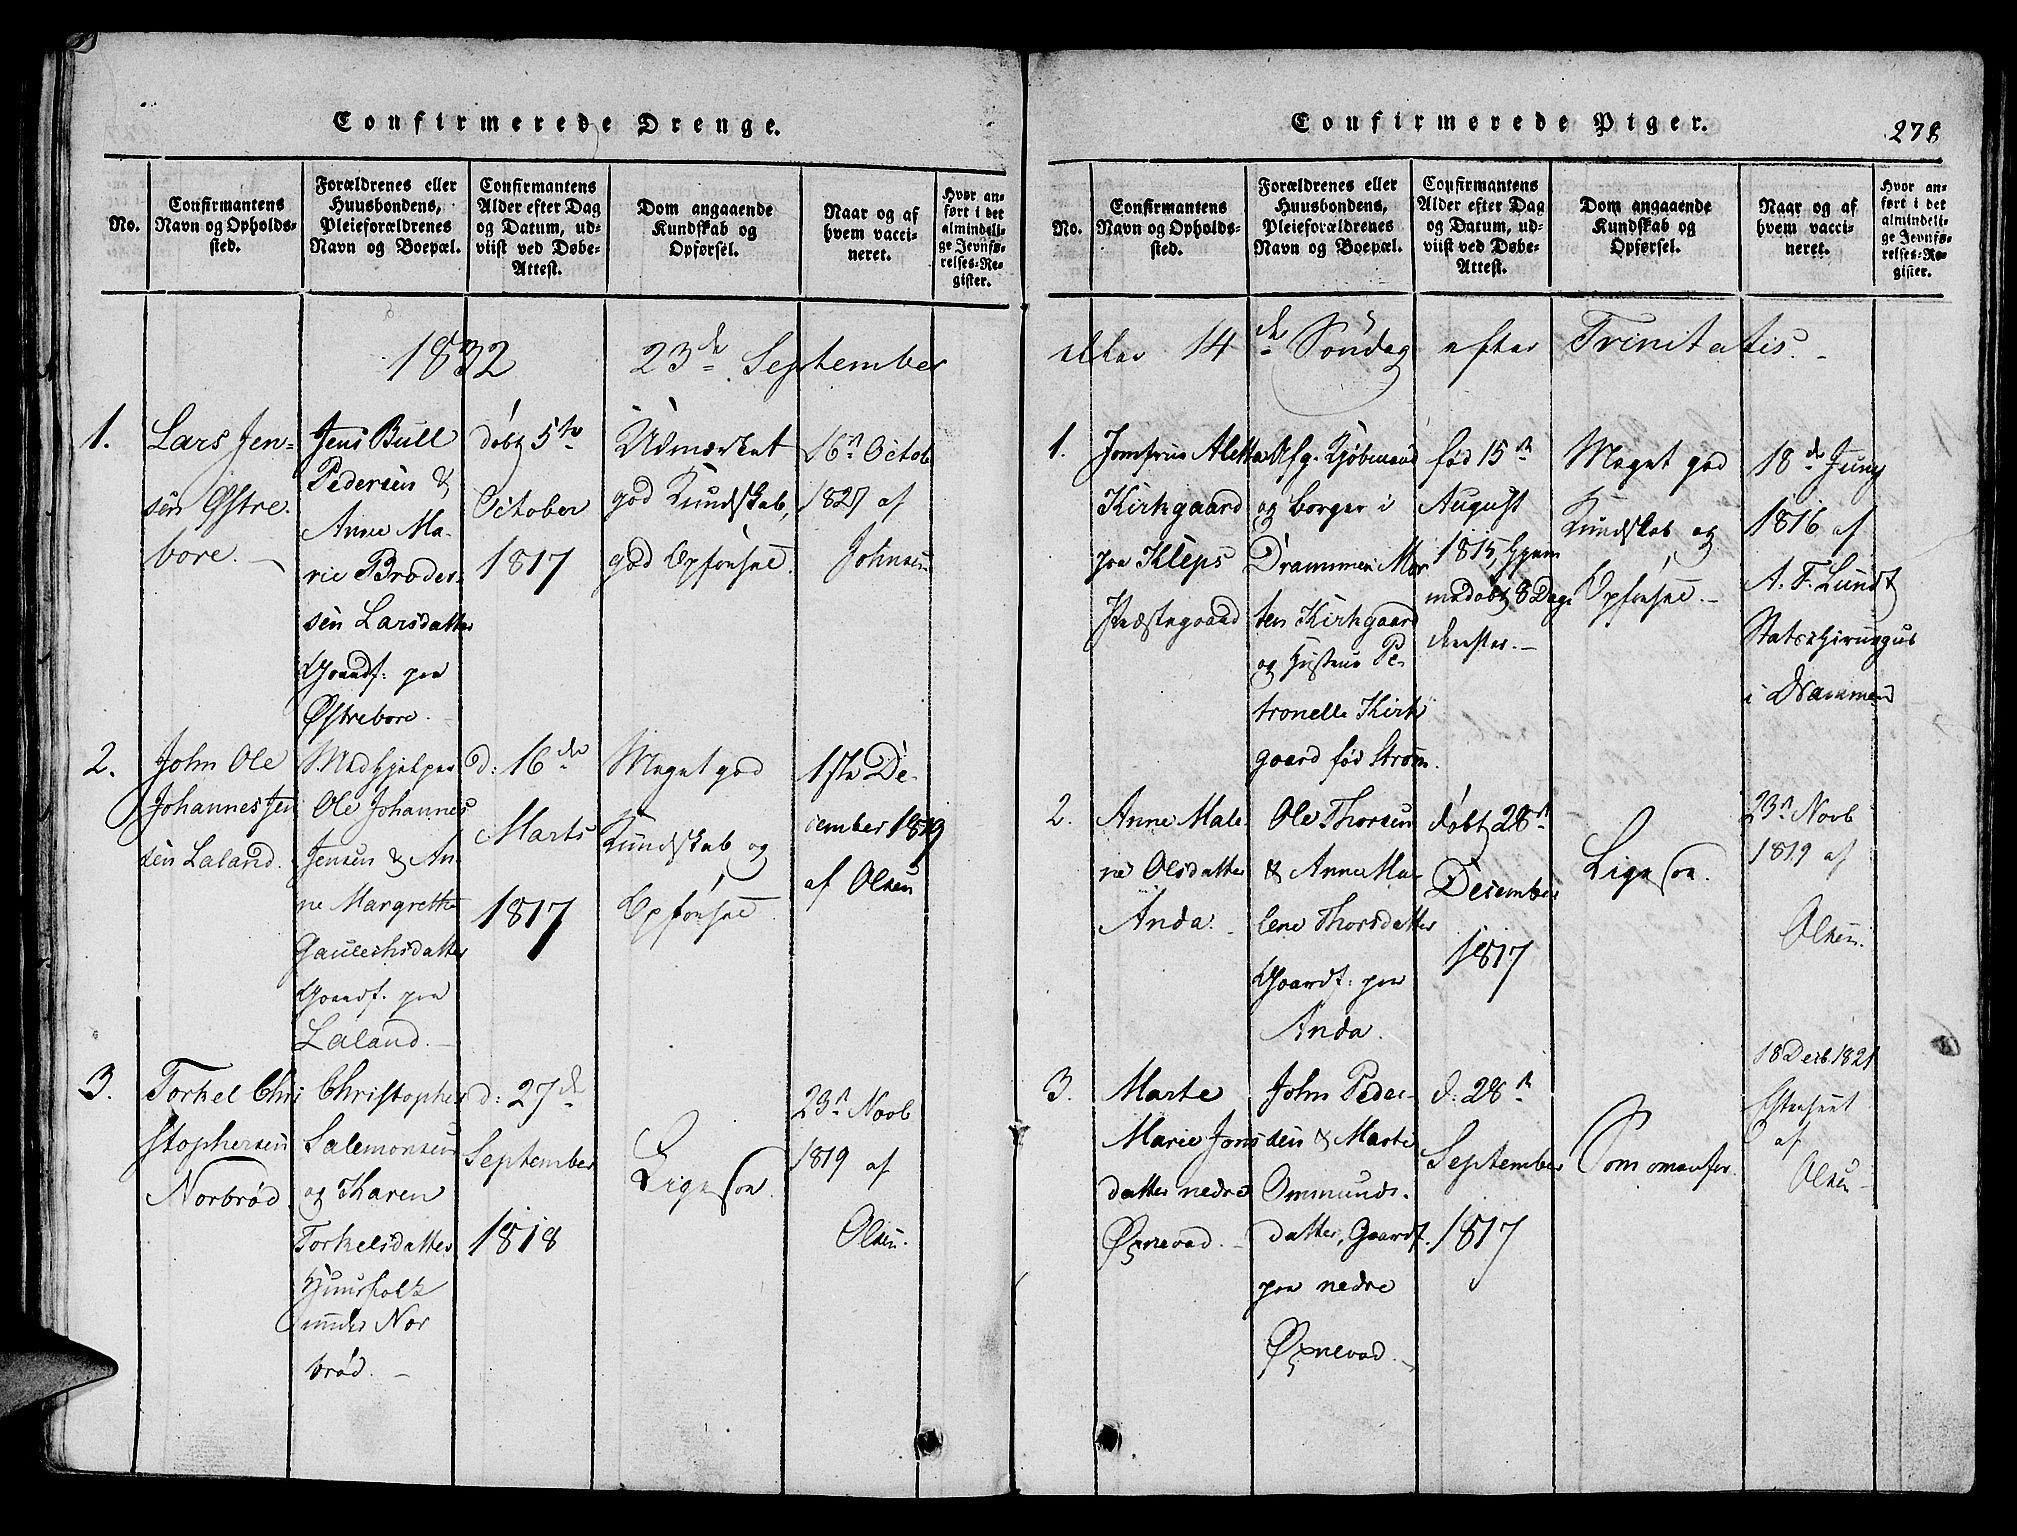 Confirmerede Drenge.
No.
Confirmantens
Navn og Opholds-
sted.
Forældrenes eller
Huusbondens,
Pleieforældrenes
Navn og Boepæl.
Confirmantens
Alder efter Dag
og Datum, ud-
viist ved Døbe-
Attest.
Dom angaaende
Kundskab og
Opførsel.
Naar og af
hvem vacci-
neret.
Hvor an-
ført i det
almindeli-
ge Jevnfø-
relses-Re-
gister.
1832 23de September
1.
Lars Jen-
sen Østre-
bore.
Jens Bull
Pedersen &
Anne Ma-
rie Broder-
sen Larsdatter
Gaardf: paa
Østrebore.
døbt 5te
October
1817
Udmærket
god Kundskab,
god Opførsel.
16n Octob
1827 af
Johnsen
2.
John Ole
Johannes Jen
sen Laland.
Medhjelper
Ole Johannes
Jensen & An-
ne Margrethe
Gaulechsdatter
Gaardf. paa
Laland.
d: 16de
Marts
1817
Meget god
Kundskab og
Opførsel
1ste De-
cember 1819
af Olsen
3.
Torkel Chri
stophersen
Norbrød
Christopher
Salemonsen
og Karen
Torkelsdatter
Huusfolk
under Nor
brød.
d: 27de
September
1818
Ligesaa.
23n Novb
1819 af
Olsen.
Confirmerede Piger.
278
No.
Confirmantens
Navn og Opholds-
sted.
Forældrenes eller
Huusbondens,
Pleieforældrenes
Navn og Boepæl.
Confirmantens
Alder efter Dag
og Datum, ud-
viist ved Døbe-
Attest.
Dom angaaende
Kundskab og
Opførsel.
Naar og af
hvem vacci-
neret.
Hvor an-
ført i det
almindeli-
ge Jevnfø-
relses-Re-
gister.
eller 14de Søndag efter Trinitatis.
1.
Jomfrue Aletta
Kirkgaard
paa Kleps
Præstegaard
Afg. Kjøbmand
og borger i
Drammen Mor
ten Kirkgaard
og Hustrue Pe-
tronelle Kirk
gaard fød Strøm.
fød 15n
August
1815, hjem
medøbt 8 Dage
derefter.
Meget god
Kundskab og
Opførsel.
18de Juny
1816 af
A. F. Lundt
Statschirurgus
i Drammen
2.
Anne Male
ne Olsdatter
Anda.
Ole Thorsen
& Anne Ma
lene Thorsdatter
Gaardf: paa
Anda.
døbt 28n
December
1817
Ligesaa.
23n Novb
1819 af
Olsen.
3.
Marte
Marie Jons
datter nedre
Øxnevad.
John Peder-
sen & Marte
Ommunds-
datter, Gaardf.
paa nedre
Øxnevad.
d: 28n
September
1817
Som ovenfor.
18 Decb. 1821
af
Olsen